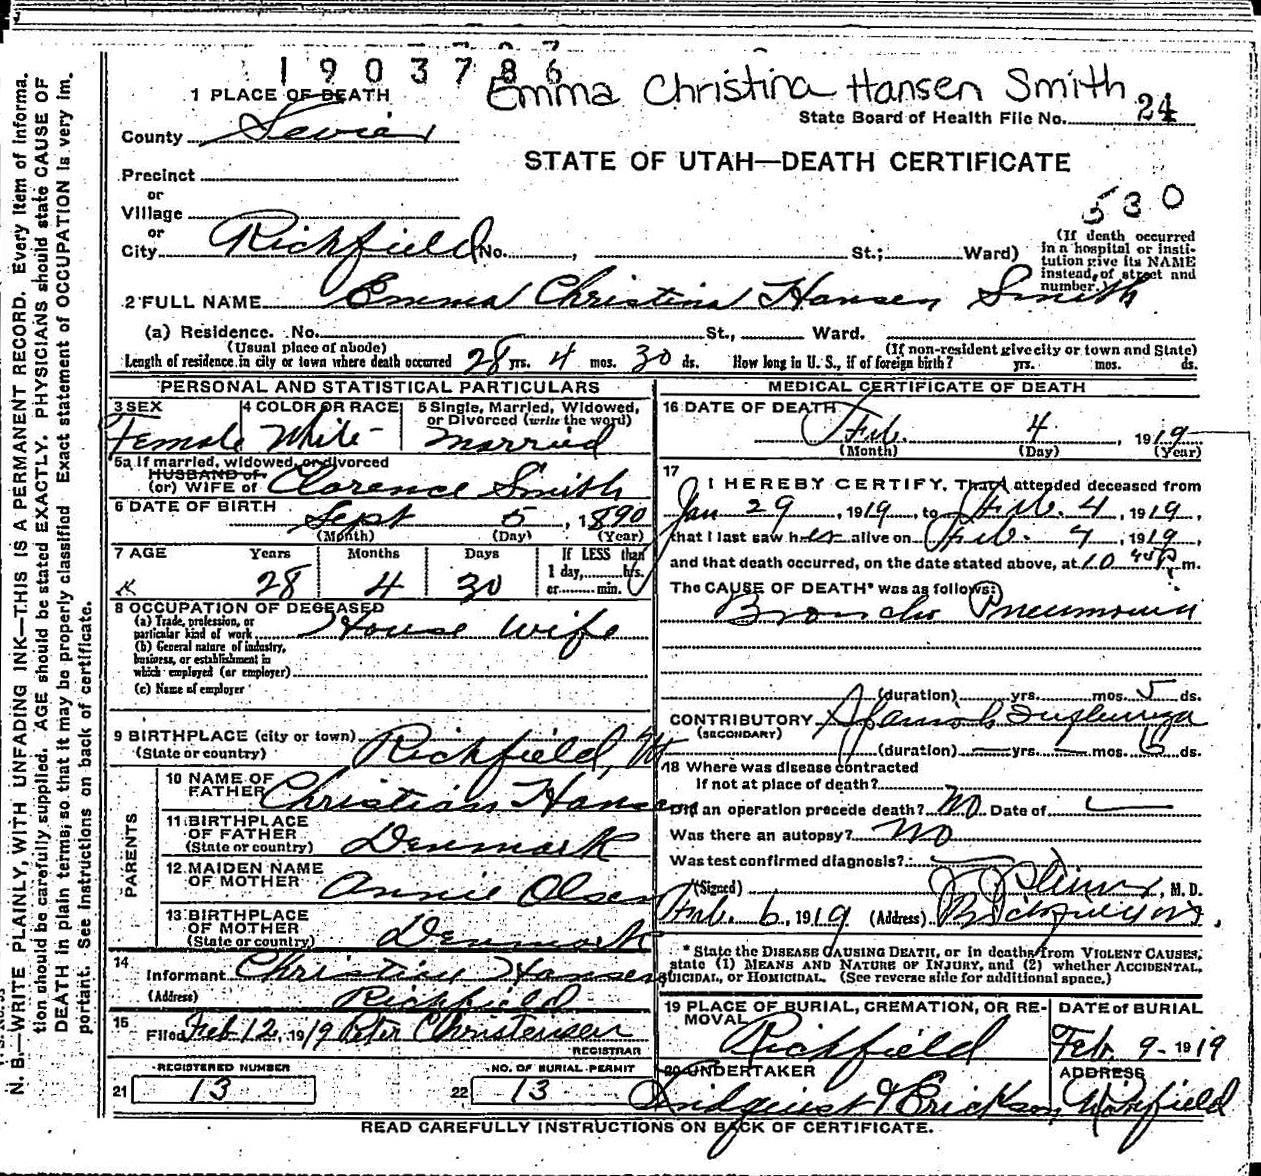 1903786
Emma Christina Hansen Smith
1 PLACE OF DEATH
State Board of Health File No. 24
County Sevier
STATE OF UTAH—DEATH CERTIFICATE
Precinct
or
Village
530
or
City Richfield No. , St.; Ward)
(If death occurred in a hospital or institution give its NAME instead of street and number.)
2 FULL NAME Emma Christina Hansen Smith
(a) Residence. No. St., Ward.
(Usual place of abode) (If non-resident give city or town and State)
Length of residence in city or town where death occurred 28 yrs. 4 mos. 30 ds. How long in U. S., if of foreign birth? yrs. mos. ds.
PERSONAL AND STATISTICAL PARTICULARS
3 SEX Female
4 COLOR OR RACE White
5 Single, Married, Widowed, or Divorced (write the word) Married
5a If married, widowed, or divorced
HUSBAND of
(or) WIFE of Clarence Smith
6 DATE OF BIRTH Sept 5, 1890
(Month) (Day) (Year)
7 AGE Years Months Days If LESS than
1 day, hrs.
28 4 30 or min.
8 OCCUPATION OF DECEASED
(a) Trade, profession, or
particular kind of work House wife
(b) General nature of industry,
business, or establishment in
which employed (or employer)
(c) Name of employer
9 BIRTHPLACE (city or town) Richfield, Ut
(State or country)
PARENTS
10 NAME OF
FATHER Christian Hansen
11 BIRTHPLACE
OF FATHER
(State or country) Denmark
12 MAIDEN NAME
OF MOTHER Annie Olsen
13 BIRTHPLACE
OF MOTHER
(State or country) Denmark
14
Informant Hansen
(Address) Richfield
15
Filed Feb 12, 1919 Peter Christensen
REGISTRAR
REGISTERED NUMBER
21 13
NO. OF BURIAL PERMIT
22 13
MEDICAL CERTIFICATE OF DEATH
16 DATE OF DEATH
Feb. 4, 1919
(Month) (Day) (Year)
17
I HEREBY CERTIFY, That I attended deceased from
Jan 29, 1919, to Feb. 4, 1919,
that I last saw her alive on Feb. 4, 1919,
and that death occurred, on the date stated above, at 10 P m.
The CAUSE OF DEATH* was as follows:
Broncho Pneumonia
(duration) yrs. mos. 5 ds.
CONTRIBUTORY Spanish Influenza
(SECONDARY)
(duration) — yrs. — mos. 6 ds.
18 Where was disease contracted
if not at place of death?
Did an operation precede death? No Date of
Was there an autopsy? No
Was test confirmed diagnosis?
(Signed) , M. D.
Feb. 6, 1919 (Address)
* State the DISEASE CAUSING DEATH, or in deaths from VIOLENT CAUSES,
state (1) MEANS AND NATURE OF INJURY, and (2) whether ACCIDENTAL,
SUICIDAL, or HOMICIDAL. (See reverse side for additional space.)
19 PLACE OF BURIAL, CREMATION, OR RE-
MOVAL Richfield
DATE of BURIAL
Feb. 9 - 1919
20 UNDERTAKER
Lindquist & Erickson
ADDRESS
Richfield
READ CAREFULLY INSTRUCTIONS ON BACK OF CERTIFICATE.
N. B.—WRITE PLAINLY, WITH UNFADING INK—THIS IS A PERMANENT RECORD. Every item of informa-
tion should be carefully supplied. AGE should be stated EXACTLY. PHYSICIANS should state CAUSE OF
DEATH in plain terms, so that it may be properly classified. Exact statement of OCCUPATION is very im-
portant. See instructions on back of certificate.